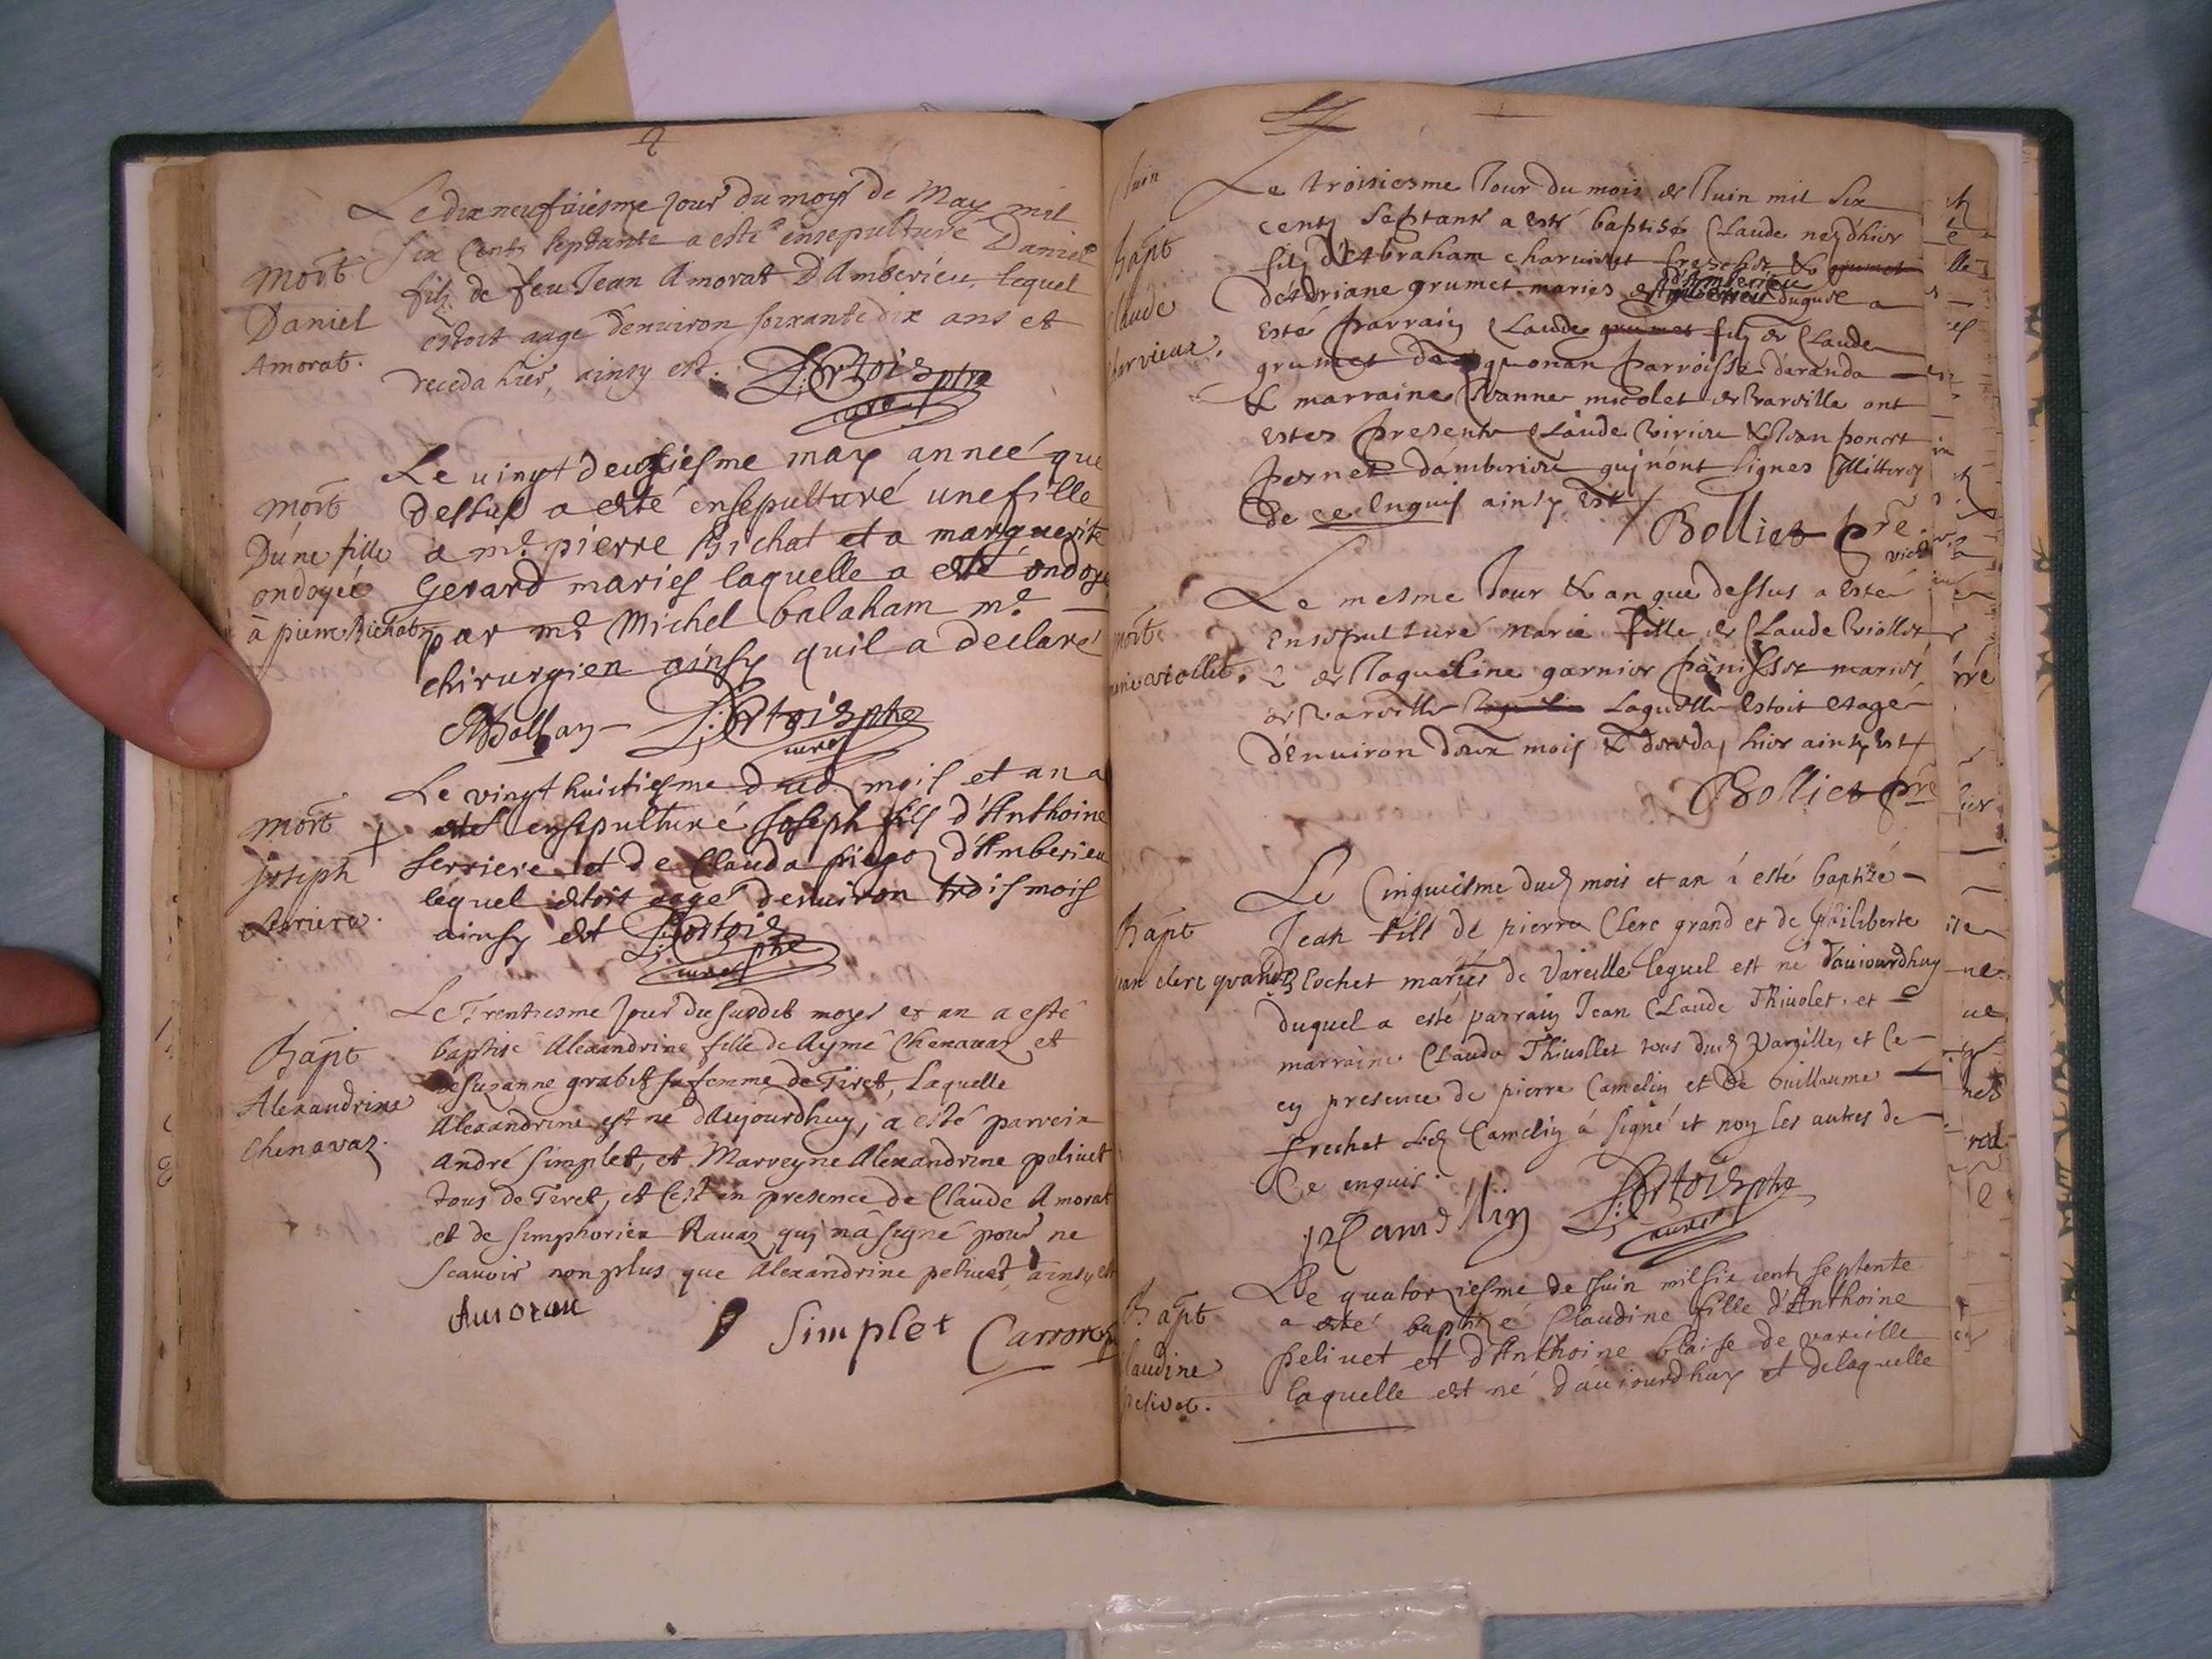 Le dixneufuiesme jour du moys de May mil
six cents septante a esté ensepulturé Daniel
filz de feu Jean Amorat d'Amberieu, lequel
estoit aagé denuiron soixante dix ans et
deceda hier, ainsy est.
curé
mort
Daniel
Amorat.
Le uingt deuxiesme may anneé que
dessus a esté ensepulturé une fille
a me pierre Bichat et a marguerite
Gerard maries laquelle a esté ondoye
par me Michel balaham me
chirurgien ainsy quil a declaré
curé
mort
D'une fille
ondoyée
à pierre Bichat
Le vingt huictiesme dud mois et an a
esté ensepulturé Joseph fils d'Anthoine
ferriere et de Clauda d'Amberieu
lequel estoit aagé denuiron trois mois
ainsy est
curé
mort
joseph
ferriere.
Le Trentiesme jour du susdit moys et an a esté
baptisé Alexandrine fille de Aymé Chenavaz et
de Suzanne grabit sa femme de Tiret, Laquelle
Alexandrine est né daujourdhuy, a esté parrein
André simplet, et Marreyne Alexandrine peliuet
tous de Tiret, et c'est en presence de Claude Amorat
et de simphorien Rauaz quj n'a signé pour ne
scauoir non plus que Alexandrine peliuet ainsy est
Bapt
Alexandrine
Chenavaz.
Amorau
Simplet
Juin
Le troisiesme Jour du mois de Juin mil six
cents septante a esté baptisé Claude nez d'hier
filz d'Abraham charuieux
d'Adriane grumet maries d'Amberieu duquel a
esté parrain Claude grumet filz de Claude
grumet parroisse d'aranda
& marraine Jeanne micolet de Vareille ont
estes presents Claude & Jean
d'amberieu quj n'ont signes Illitteres
de ce enquis ainsy est
Bolliet pre
vicr
Bapt
Claude
Charvieux.
Le mesme Jour & an que dessus a esté
ensepulturé Marie fille de Claude Viollet
& de Jaqueline garnier maries
de Vareille Laquelle estoit aagé
d'enuiron deux mois & deceda hier ainsy est
Bolliet pre
mort
marie viollet.
Le Cinquiesme dud mois et an à esté baptizé
Jean fils de pierre Clerc grand et de philiberte
Cochet mariés de Vareille lequel est né d'auiourdhuy
duquel a esté parrain Jean Claude Thiuolet et
marraine Clauda Thiuollet tous dud Vareille, et Ce
en presence de pierre Camelin et de Guillaume
frechet Led Camelin à signé et non les autres de
Ce enquis.
curé
Bapt
jean clerc grand
Le quatorziesme de Juin mil six cents septente
a esté baptizé Claudine fille d'Anthoine
peliuet et d'Anthoine blaise de vareille
laquelle est né d'auiourdhuy et delaquelle
Bapt
Claudine
pelivet.